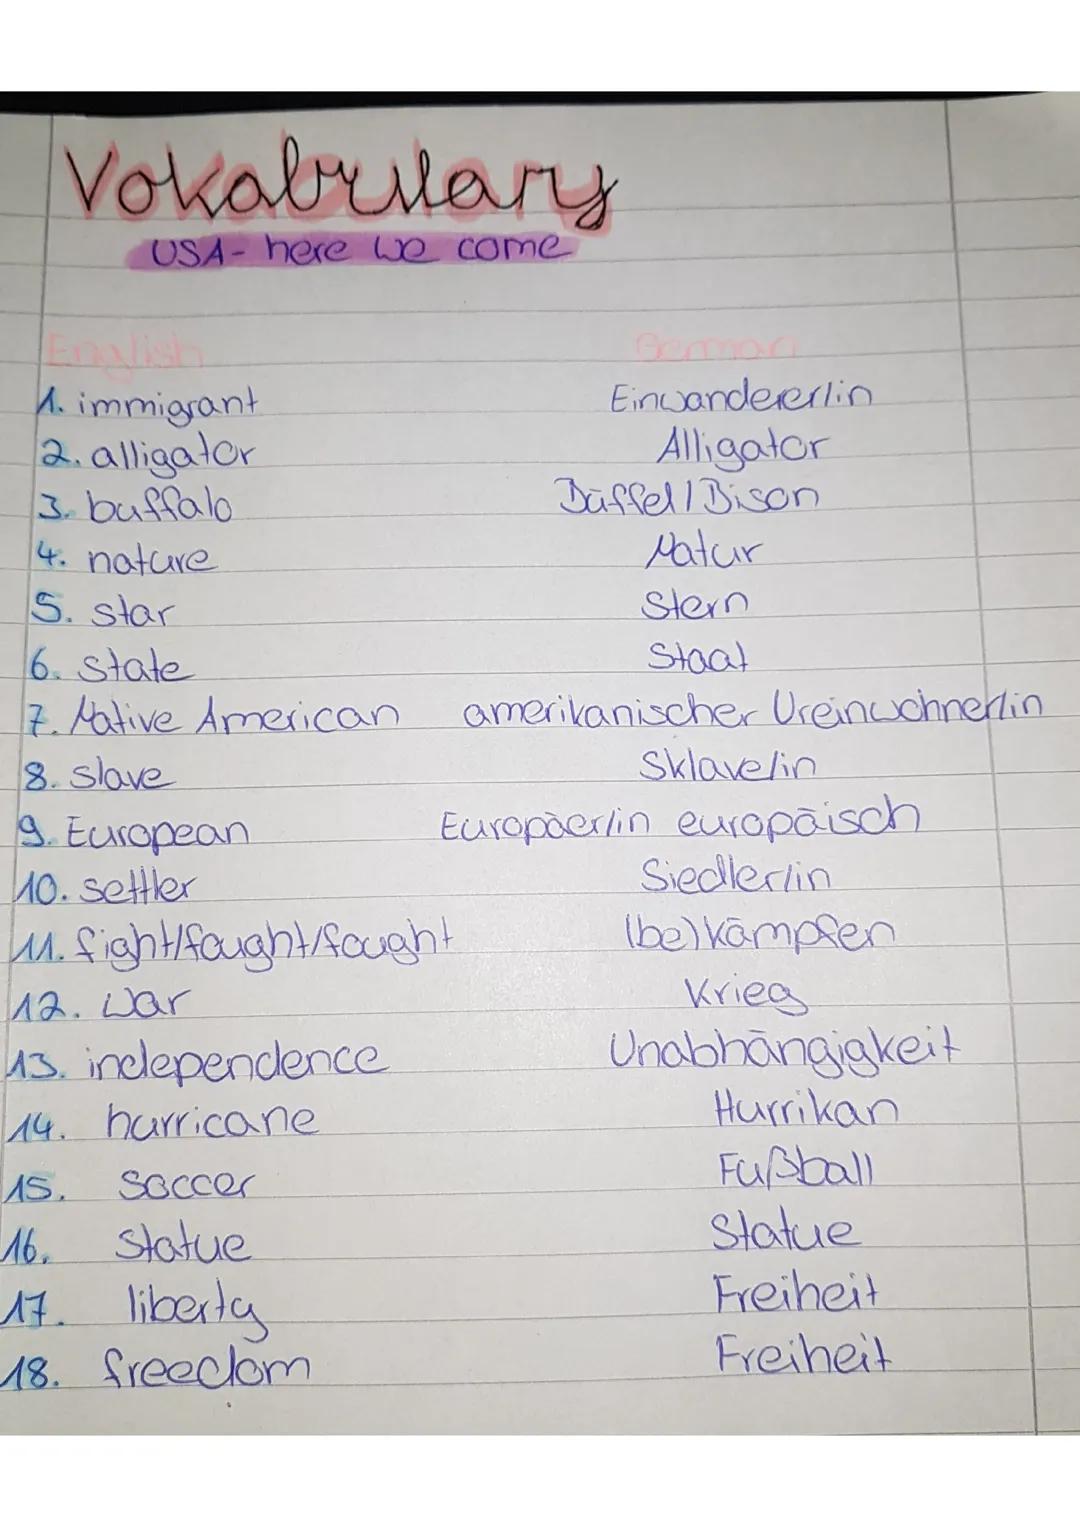 Vokabulary
USA- here we come
English German
1. immigrant Einwanderer/in
2. alligator Alligator
3. buffalo Büffel/Bison
4. nature Natur
5. star Stern
6. state Staat
7. Native American amerikanischer Ureinwohner/in
8. slave Sklave/in
9. European Europäer/in europäisch
10. settler Siedler/in
11. fight/fought/fought (be)kämpfen
12. war Krieg
13. independence Unabhängigkeit
14. hurricane Hurrikan
15. soccer Fußball
16. statue Statue
17. liberty Freiheit
18. freedom Freiheit